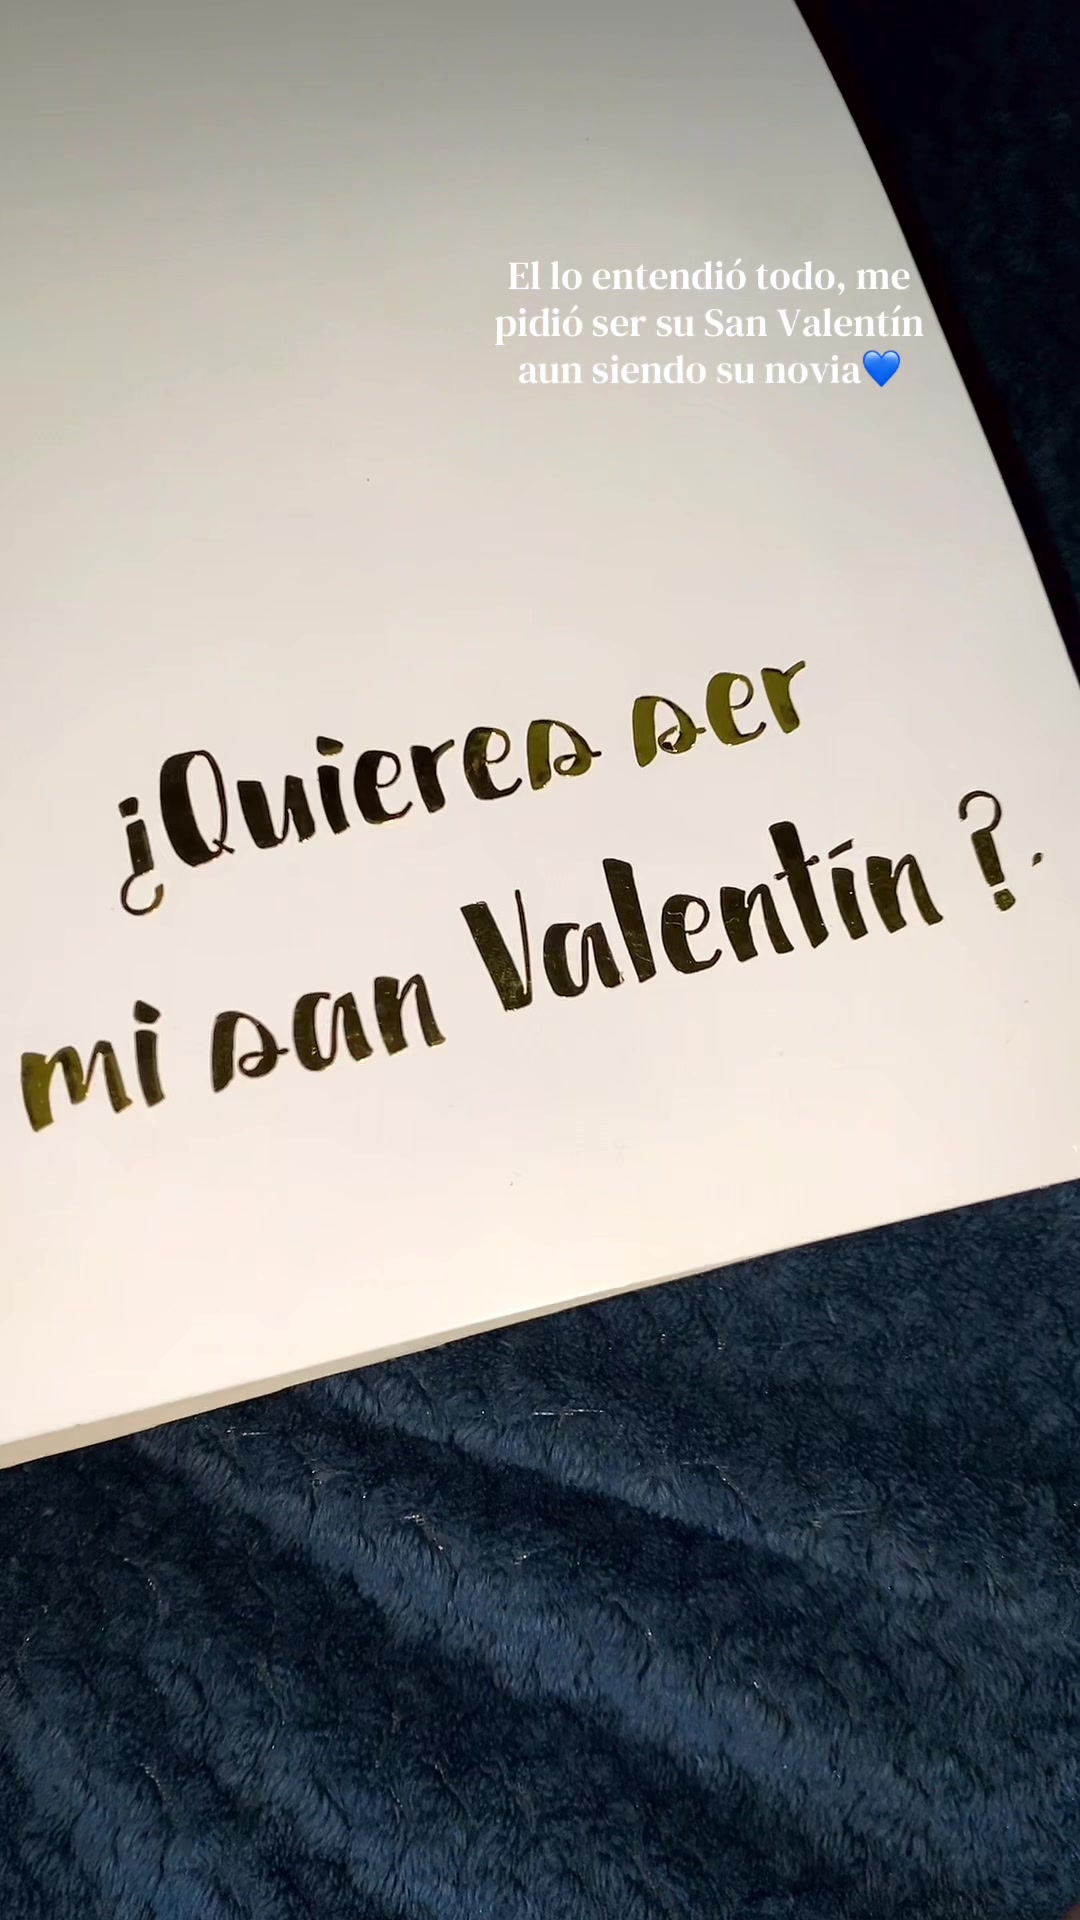 El lo entendió todo, me
pidió ser su San Valentín
aun siendo su novia💙
¿Quieres ser
mi san Valentín?